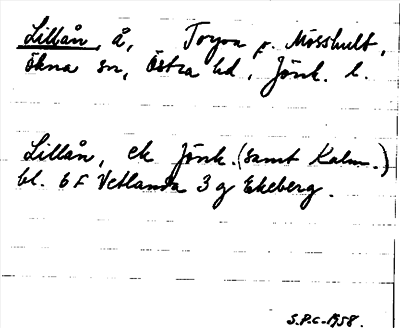 Lillån, å, Torpa f. Mosshult,
Ökna sn, Östra hd, Jönk. l.
Lillån, ek Jönk. (samt Kalm.)
bl. 6 F Vetlanda 3 g Ekeberg.
S.P.C-1958.